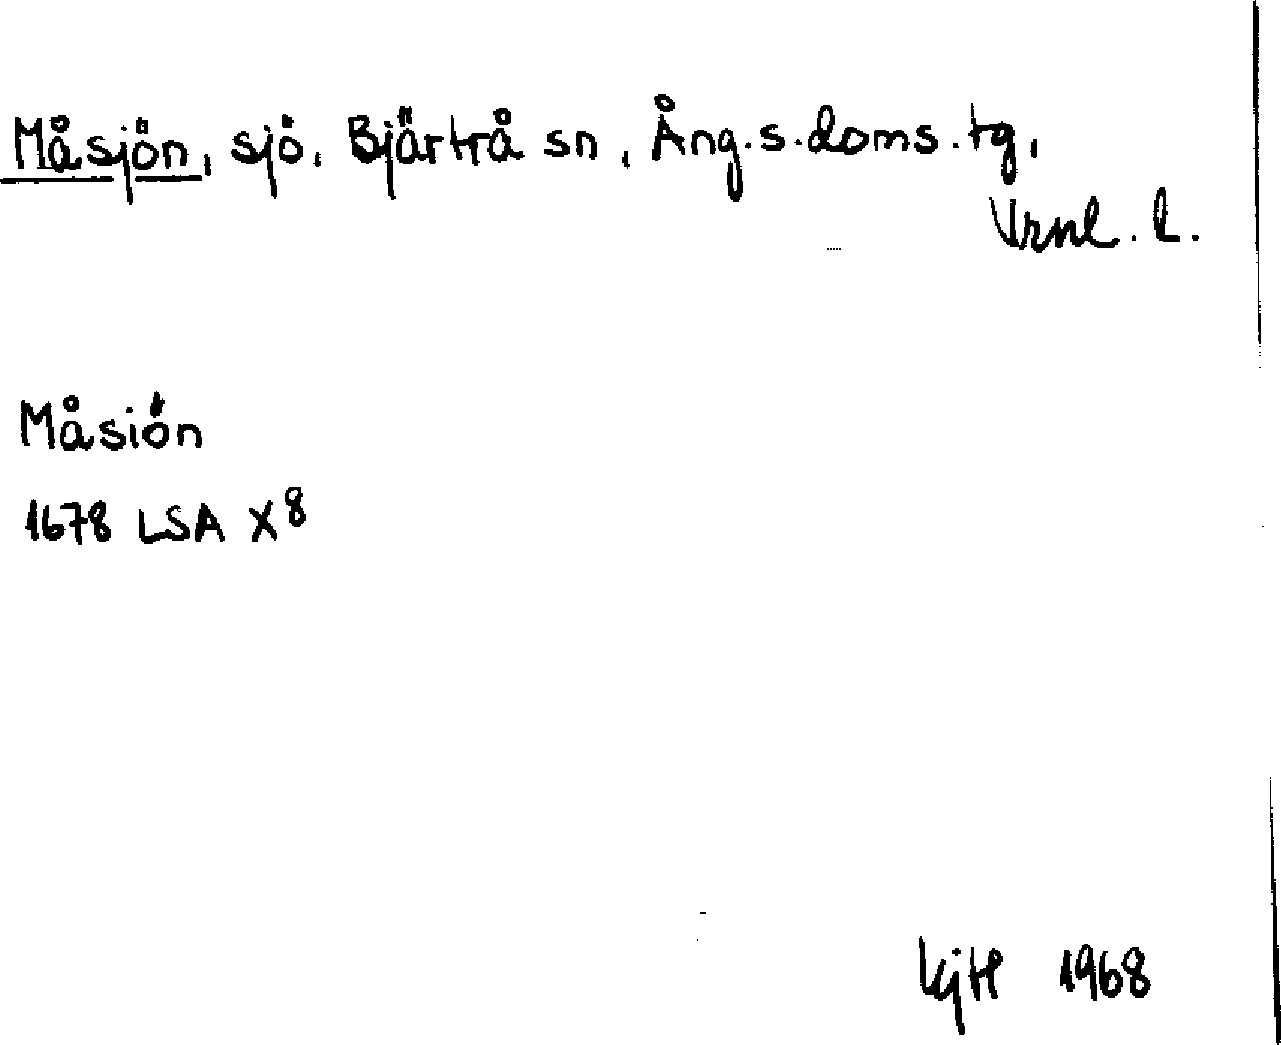 Måsjön, sjö. Bjärtrå sn, Ång.s.doms.tg,
Vrnl. l.
Måsiön
1678 LSA X8
KjH 1968